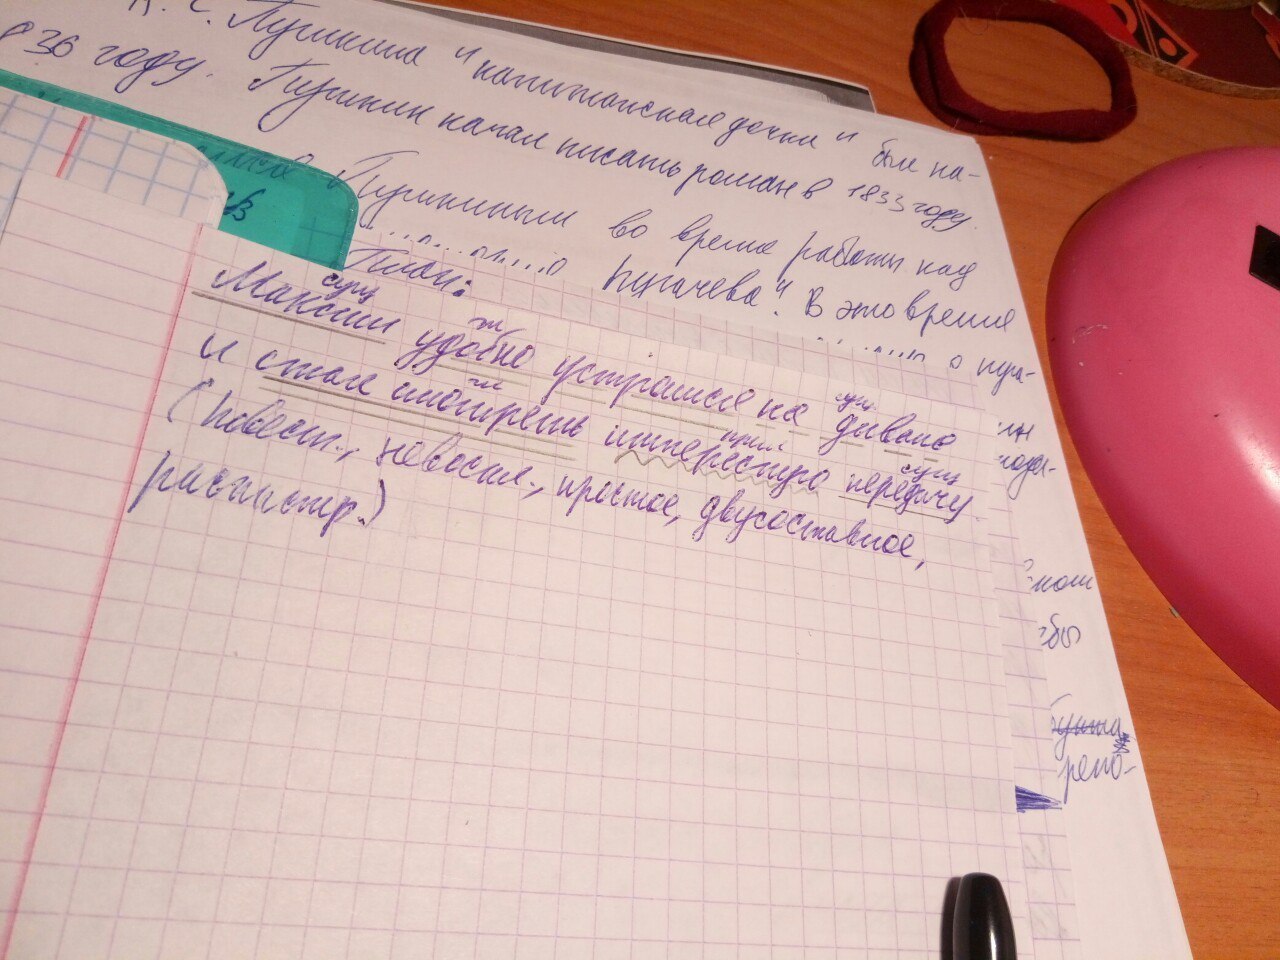 К. С. Пушкина "капитанская дочка" был на-
836 году. Пушкин начал писать роман в 1833 году.
Пушкиным во время работы над
Пугачева". В это время
о пуга-
План:
сущ
Максим удобно устрашся на дивано
сущ
гл прил сущ
и стал смотреть интерестую передачу.
(повест., невоскл., простое, двусоставное,
распостр.)
ном
бы
бунта
рело-